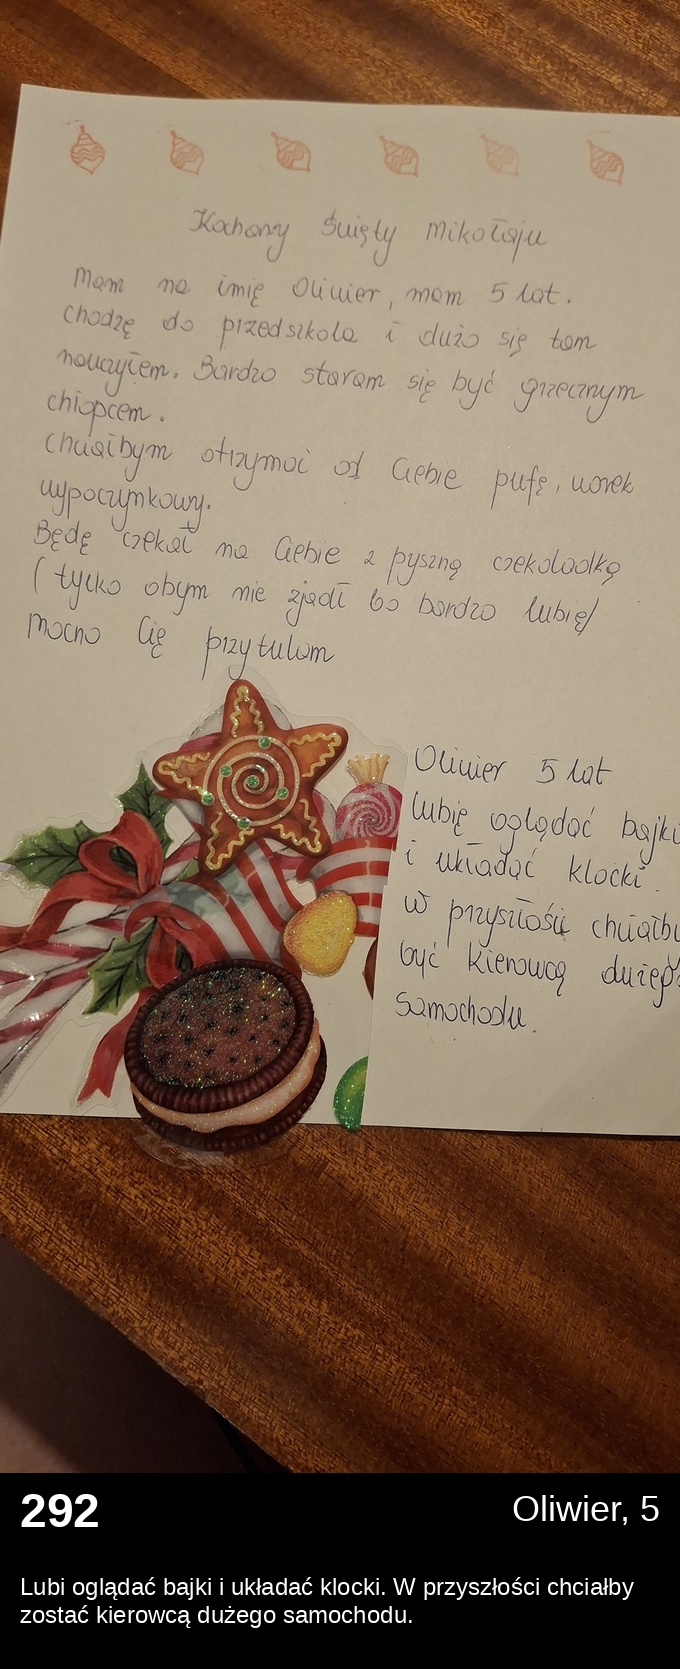 Kochany Święty Mikołaju
Mam na imię Oliwier, mam 5 lat.
chodzę do przedszkola i dużo się tam
nauczyłem. Bardzo staram się być grzecznym
chłopcem.
chciałbym otrzymać od Ciebie pufę, worek
wypoczynkowy.
Będę czekał na Ciebie z pyszną czekoladką
(tylko obym nie zjadł bo bardzo lubię)
Mocno Cię przytulam
Oliwier 5 lat
lubię oglądać bajki
i układać klocki.
w przyszłości chciałby
być kierowcą dużego
samochodu.
292
Oliwier, 5
Lubi oglądać bajki i układać klocki. W przyszłości chciałby
zostać kierowcą dużego samochodu.